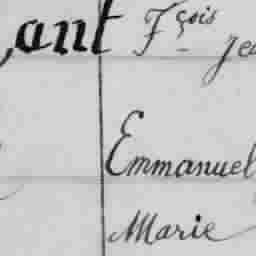 ,ant Fçois
Je
Emmanuel
Marie